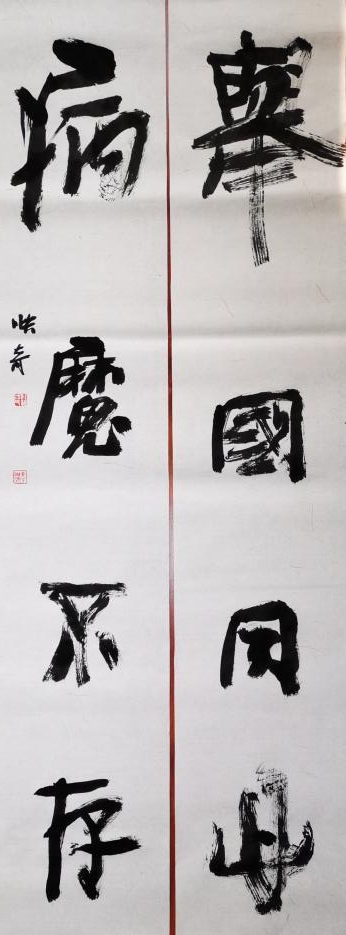 舉國同心
病魔不存